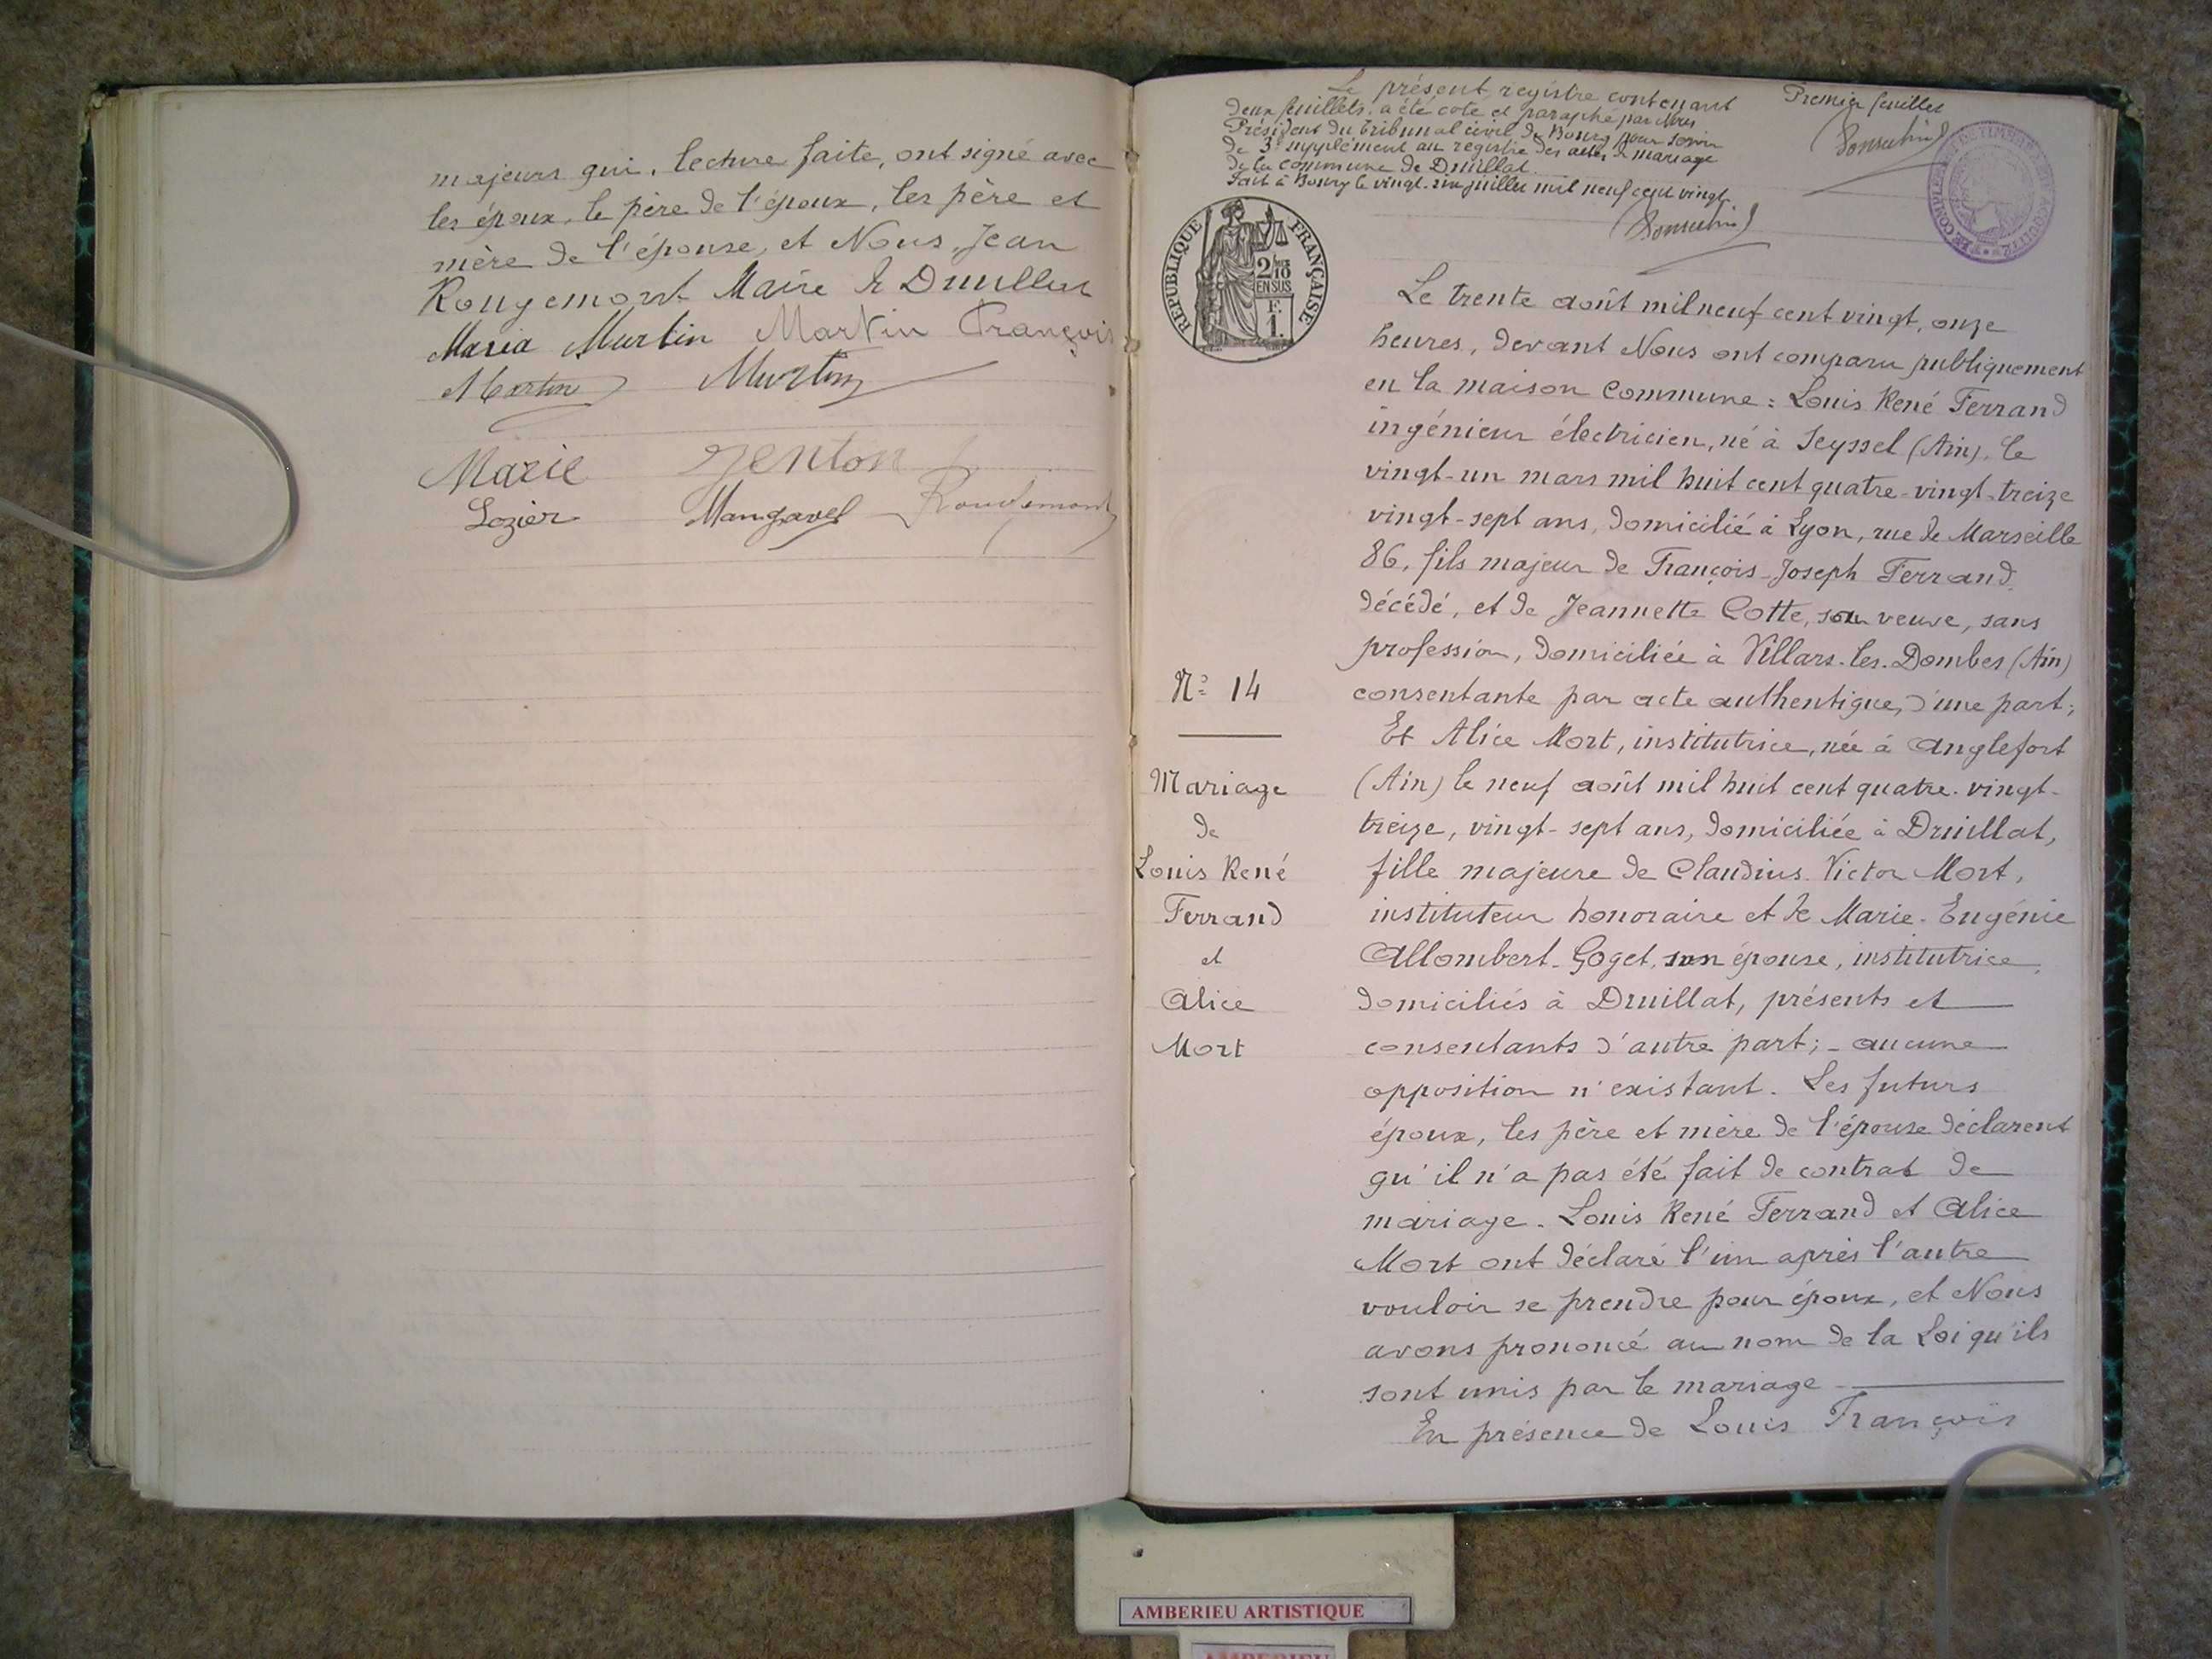 majeurs qui, lecture faite, ont signé avec
les époux, le père de l'époux, les père et
mère de l'épouse, et Nous, Jean
Rougemont Maire de Druillat
Maria Martin Martin François
Martin Martin
Marie Genton
Lozier Mangavel Rougemont
Le présent registre contenant
deux feuillets, a été coté et paraphé par Nous
Président du Tribunal civil de Bourg pour servir
de 3e supplément au registre des actes de mariage
de la commune de Druillat.
Fait à Bourg le vingt-six juillet mil neuf cent vingt.
Premier feuillet
RÉPUBLIQUE FRANÇAISE
2/10
EN SUS
F.
1.
Le trente août mil neuf cent vingt, onze
heures, devant Nous ont comparu publiquement
en la maison commune : Louis René Ferrand
ingénieur électricien, né à Seyssel (Ain), le
vingt-un mars mil huit cent quatre-vingt-treize
vingt-sept ans, domicilié à Lyon, rue de Marseille
86, fils majeur de François-Joseph Ferrand
décédé, et de Jeannette Cotte, sa veuve, sans
profession, domiciliée à Villars-les-Dombes (Ain)
consentante par acte authentique, d'une part ;
Et Alice Mort, institutrice, née à Anglefort
(Ain) le neuf août mil huit cent quatre-vingt-
treize, vingt-sept ans, domiciliée à Druillat,
fille majeure de Claudius-Victor Mort,
instituteur honoraire et de Marie-Eugénie
Allombert-Goget, son épouse, institutrice,
domiciliés à Druillat, présents et
consentants d'autre part ; - aucune
opposition n'existant. Les futurs
époux, les père et mère de l'épouse déclarent
qu'il n'a pas été fait de contrat de
mariage. Louis René Ferrand et Alice
Mort ont déclaré l'un après l'autre
vouloir se prendre pour époux, et Nous
avons prononcé au nom de la Loi qu'ils
sont unis par le mariage
En présence de Louis François
No 14
Mariage
de
Louis René
Ferrand
et
Alice
Mort
AMBERIEU ARTISTIQUE
AMBERIEU